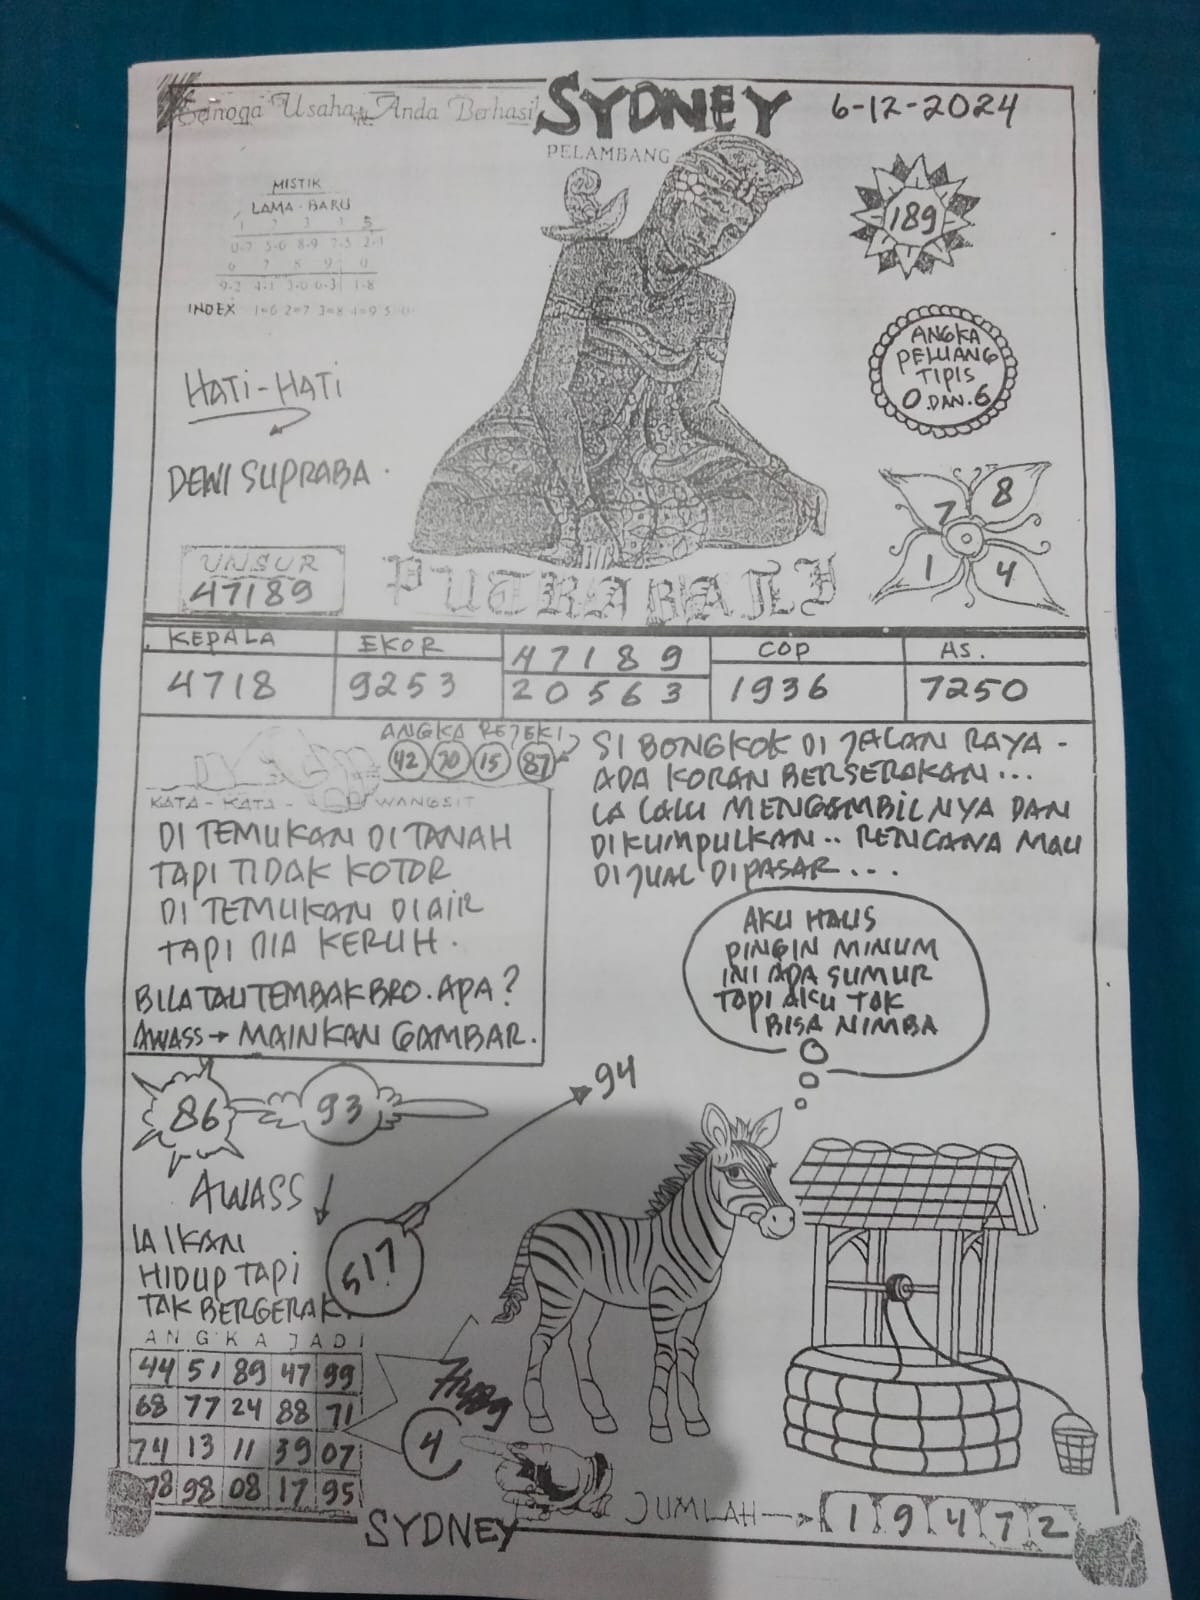 Semoga Usaha Anda Berhasil
SYDNEY
6-12-2024
PELAMBANG
MISTIK
LAMA - BARU
0-7 5-6 8-9 7-5 2-1
INDEX 1=6 2=7 3=8 4=9 5
189
ANGKA
PELUANG
TIPIS
0 DAN. 6
HATI-HATI
DEWI SUPRABA.
UNSUR
47189
7 8
1 4
PUTRA BALI
KEPALA
4718
EKOR
9253
47189
20563
COP
1936
AS.
7250
ANGKA REJEKI
42 70 15 87
KATA - KATA - WANGSIT
DI TEMUKAN DI TANAH
TAPI TIDAK KOTOR
DI TEMUKAN DI AIR
TAPI DIA KERUH.
BILA TAU TEMBAK BRO. APA?
AWASS → MAINKAN GAMBAR.
SI BONGKOK DI JALAN RAYA -
ADA KORAN BERSERAKAN...
LA LALU MENGAMBILNYA DAN
DIKUMPULKAN.. RENCANA MAU
DIJUAL DIPASAR...
AKU HAUS
PINGIN MINUM
INI ADA SUMUR
TAPI AKU TAK
BISA NIMBA
86
93
94
AWASS
IA IKAN
HIDUP TAPI
TAK BERGERAK
517
ANGKA JADI
44 51 89 47 99
68 77 24 88 71
74 13 11 39 07
78 98 08 17 95
4
SYDNEY
JUMLAH
19472